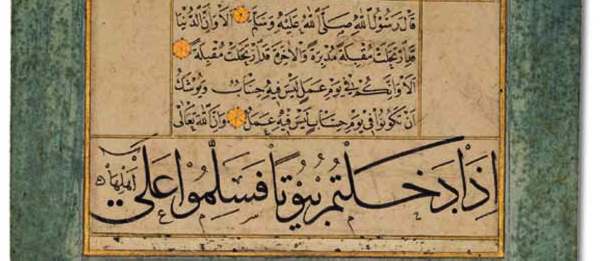 قَالَ رَسُولُ اللّٰهِ صَلَّى اللّٰهُ عَلَيْهِ وَسَلَّمَ اَلَا وَاِنَّ الدُّنْيَا
قَدِارْتَحَلَتْ مُقْبِلَةً مُدْبِرَةً وَالْاٰخِرَةُ قَدِارْتَحَلَتْ مُقْبِلَةً
اَلَا وَاِنَّكُمْ فِي يَوْمِ عَمَلٍ لَيْسَ فِيهِ حِسَابٌ وَيُوشِكُ
اَنْ تَكُونُوا فِي يَوْمِ حِسَابٍ لَيْسَ فِيهِ عَمَلٌ وَاِنَّ اللّٰهَ تَعَالٰى
اِذَا دَخَلْتُمْ بُيُوتًا فَسَلِّمُوا عَلٰى اَهْلِهَا